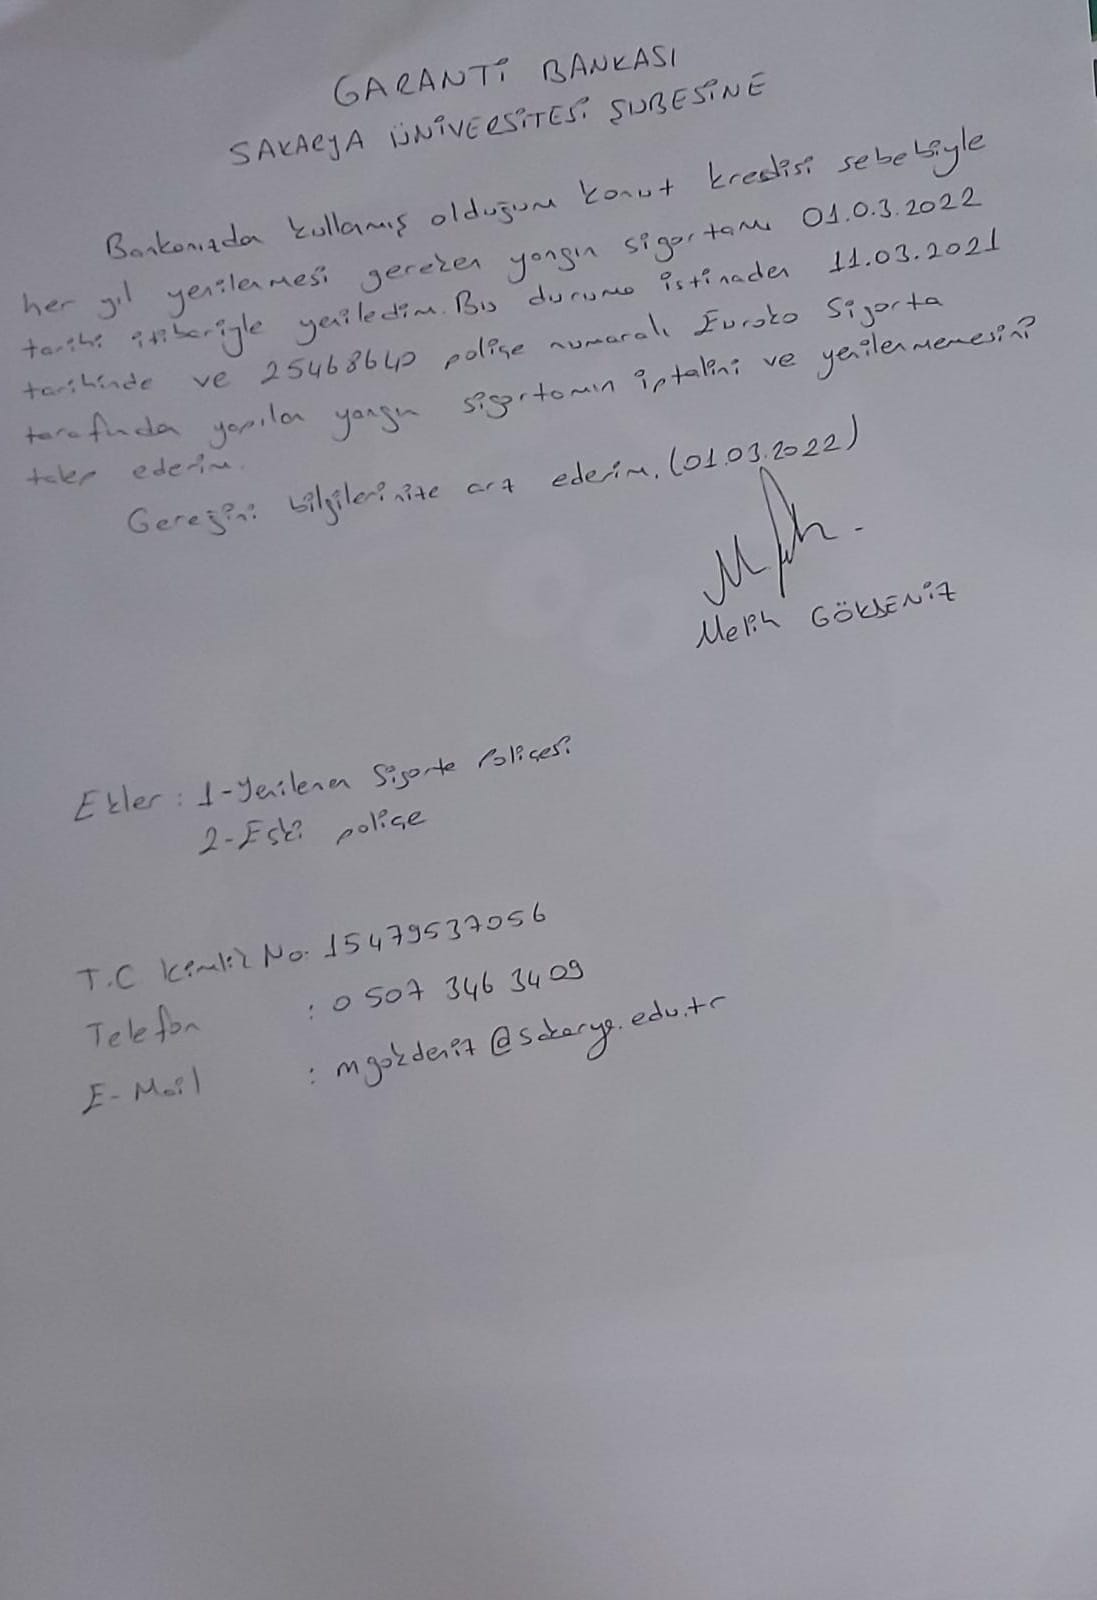 GARANTİ BANKASI
SAKARYA ÜNİVERSİTESİ ŞUBESİNE
Bankanızda kullanmış olduğum konut kredisi sebebiyle
her yıl yenilenmesi gereken yangın sigortamı 01.0.3.2022
tarihi itibariyle yeniledim. Bu duruma istinaden 11.03.2021
tarihinde ve 25468640 poliçe numaralı Euroko Sigorta
tarafında yapılan yangın sigortamın iptalini ve yenilenmemesini
talep ederim.
Gereğini bilgilerinize arz ederim. (01.03.2022)
Melih GÖKDENİZ
Ekler : 1-Yenilenen Sigorta Poliçesi
2-Eski poliçe
T.C Kimlik No: 15479537056
Telefon : 0 507 346 3409
E-Mail : mgokdeniz@sakarya.edu.tr